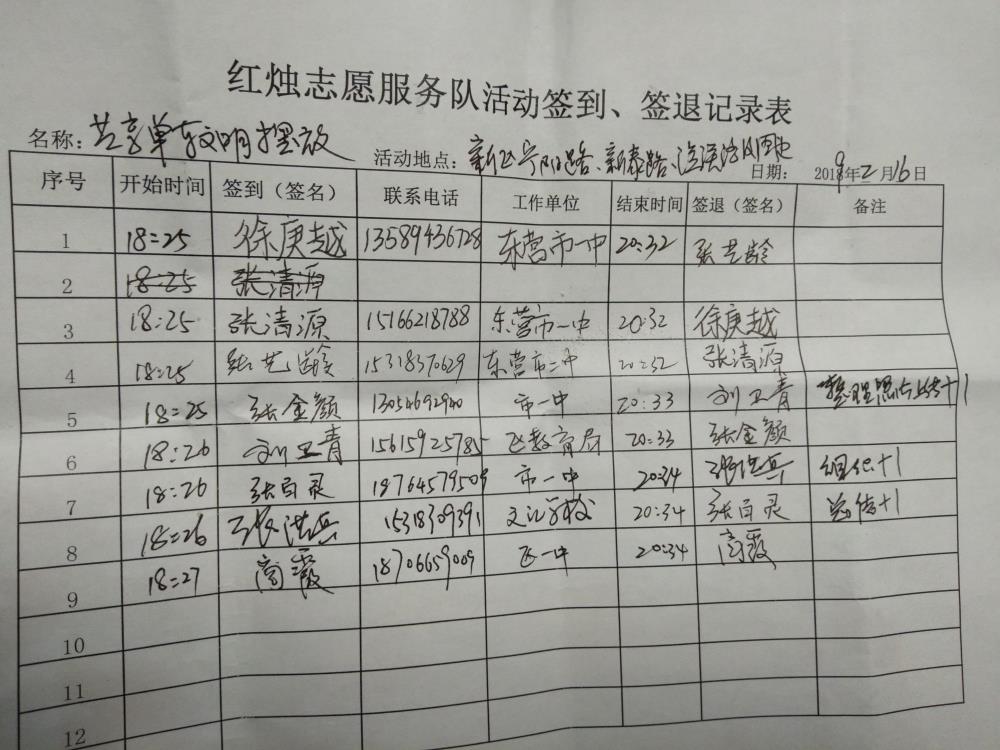 红烛志愿服务队活动签到、签退记录表
名称：共享单车文明摆放 活动地点：新 路、新泰路、 日期：2019年2月16日
序号 开始时间 签到（签名） 联系电话 工作单位 结束时间 签退（签名） 备注
1 18:25 徐庚越 13589436728 东营市一中 20:32 张艺龄
2 18:25 张清源
3 18:25 张清源 15166218788 东营市一中 20:32 徐庚越
4 18:25 张艺龄 15318370629 东营市二中 20:32 张清源
5 18:25 张金颜 13054692940 市一中 20:33 刘卫青 整理照片上传+1
6 18:26 刘卫青 15615925785 区教育局 20:33 张金颜
7 18:26 张百灵 18764579509 市一中 20:34 张洪兵 组织+1
8 18:26 张洪兵 15318309391 文汇学校 20:34 张百灵 总结+1
9 18:27 高霞 18706659009 区一中 20:34 高霞
10
11
12